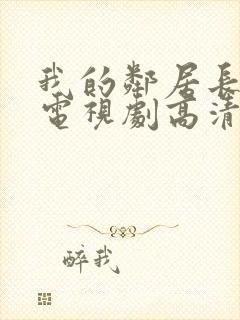 我的鄰居長
電視劇高清
醉我